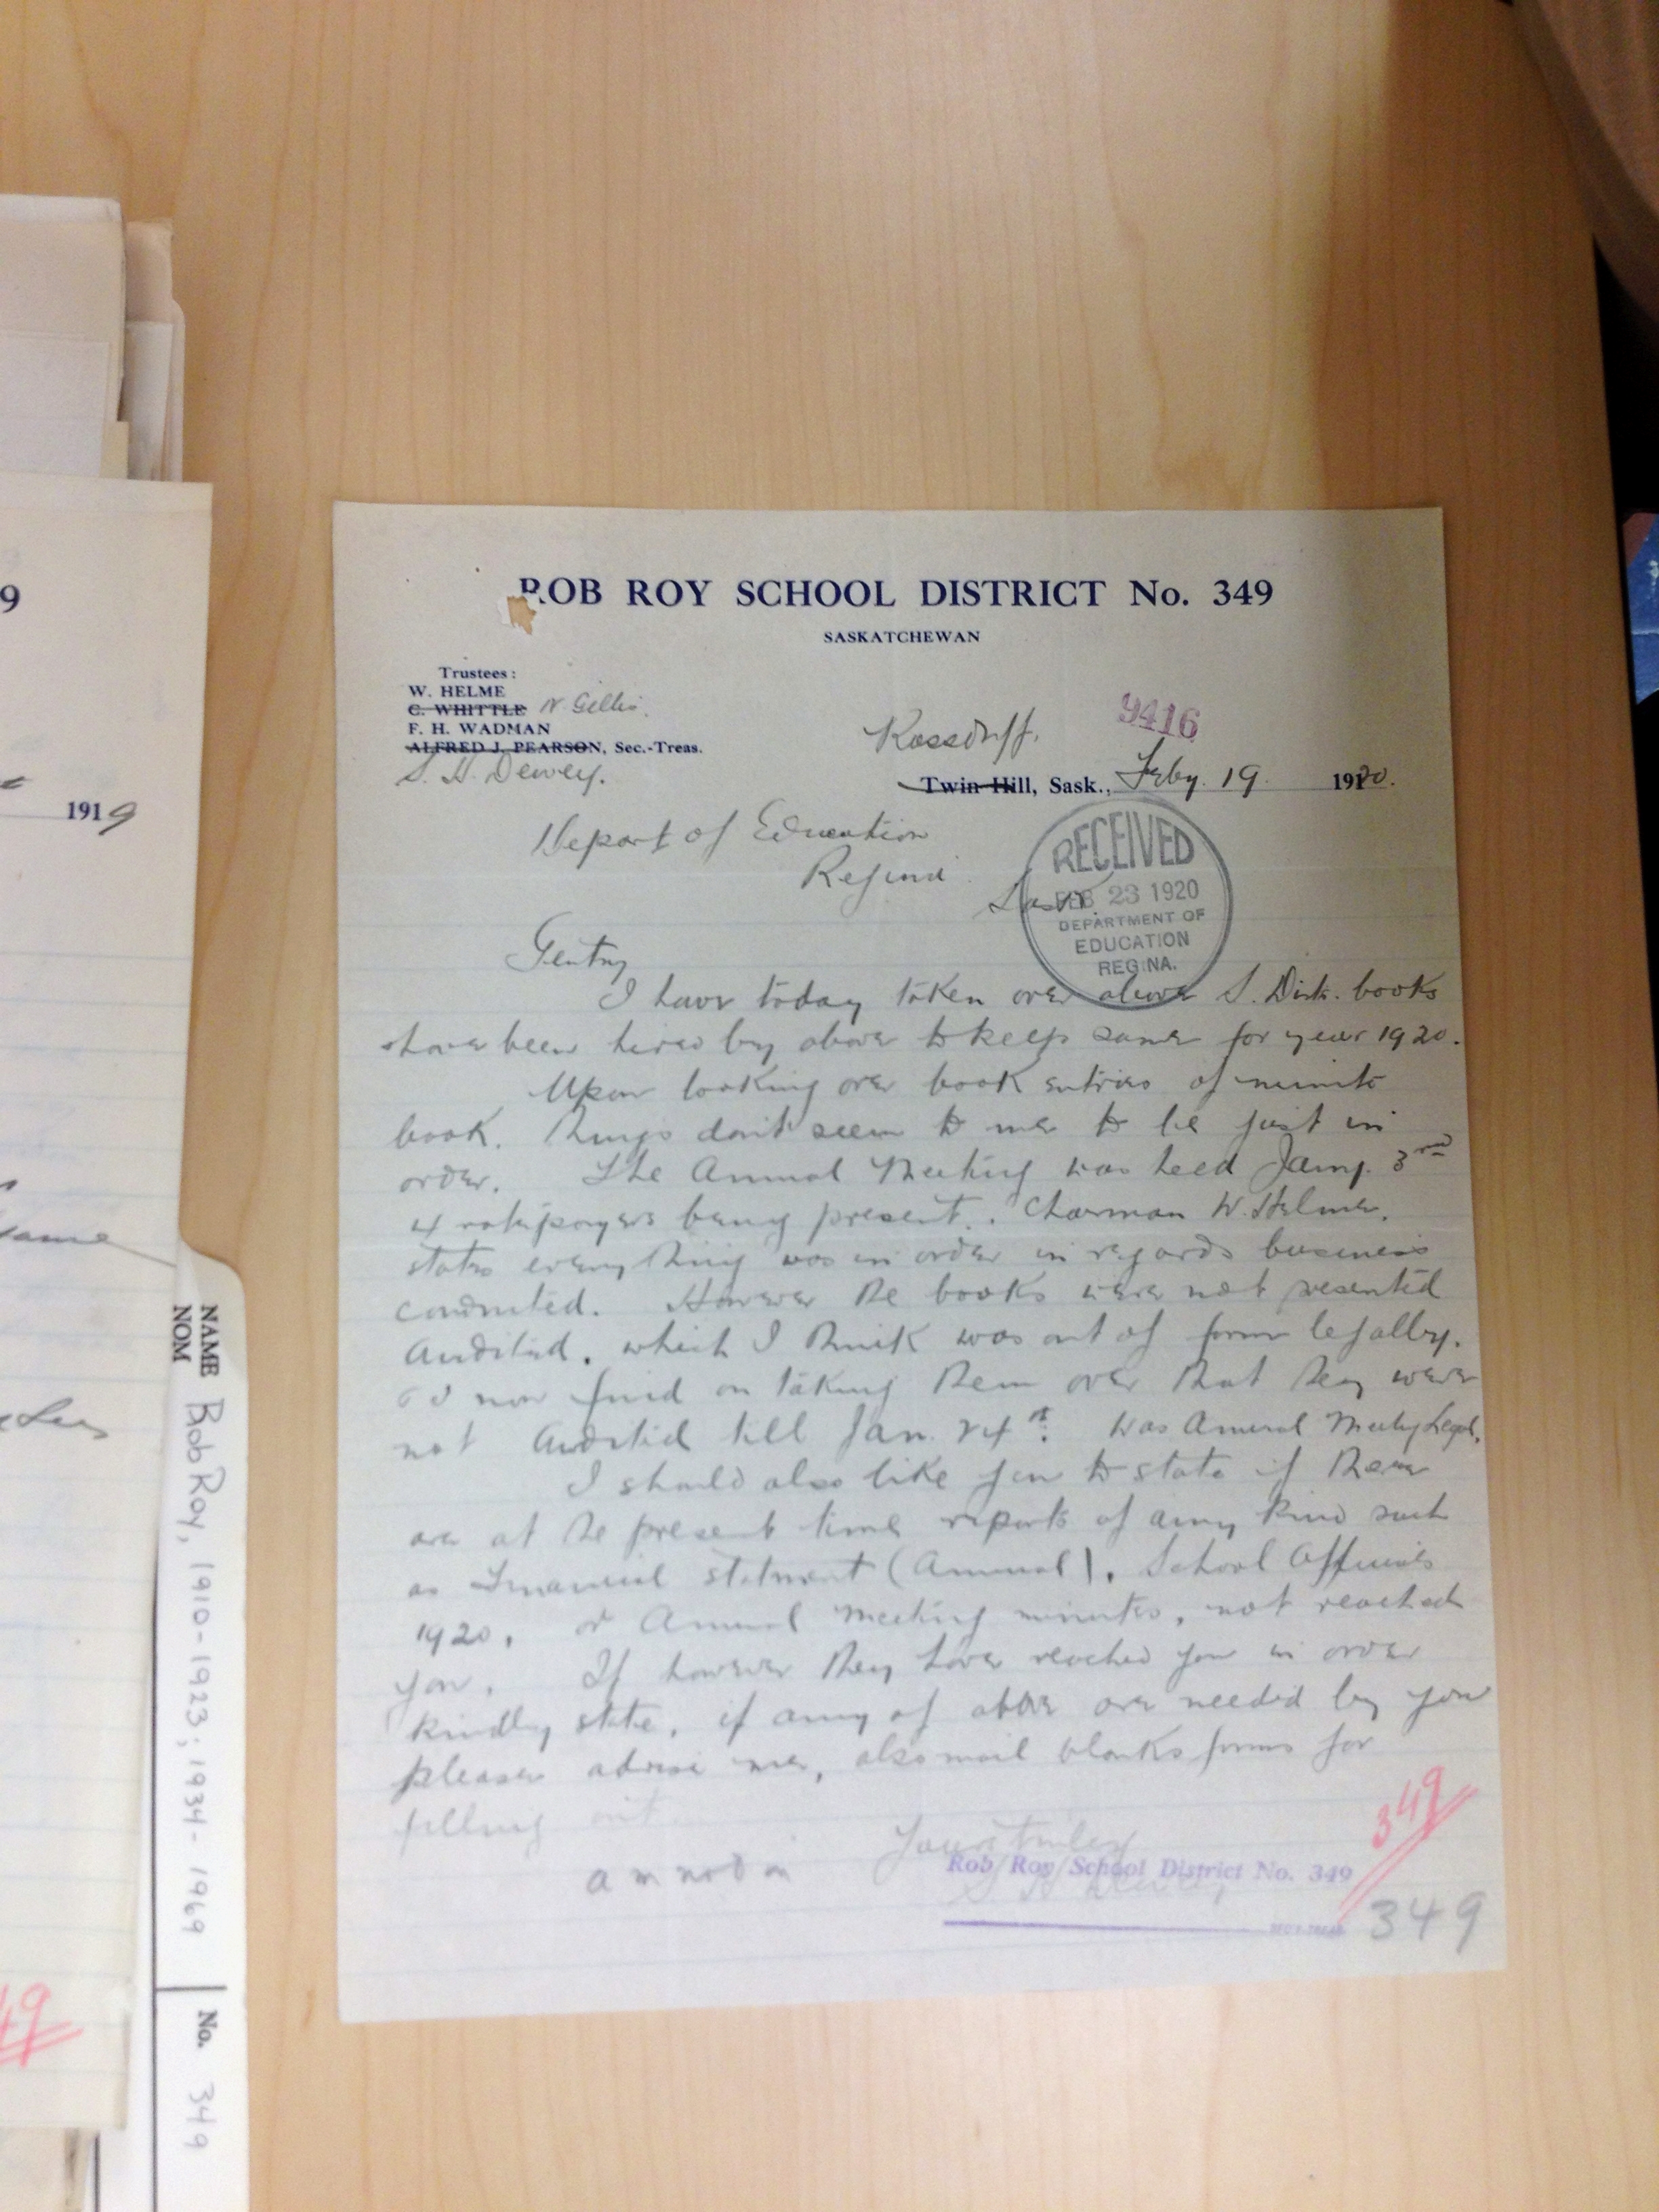 ROB ROY SCHOOL DISTRICT No. 349
SASKATCHEWAN
Trustees:
W. HELME
C. WHITTLE N. Gillis.
F. H. WADMAN
ALFRED J. PEARSON, Sec.-Treas.
S. H. Dewey.
9416
Rossduff.
Twin Hill, Sask., Feby. 19. 1920.
Depart of Education
Regina
Sask.
RECEIVED
FEB 23 1920
DEPARTMENT OF
EDUCATION
REGINA.
I have today taken over above S. Dist. books
have been hired by above to keep same for year 1920.
Upon looking over book entries of minute
book. things dont seem to me to be just in
order. The Annual Meeting was held Jany. 3rd
4 ratepayers being present. Chairman W. Helme,
states everything was in order in regards business
conducted. However the books were not presented
Audited, which I think was out of form legally.
I now find on taking them over that they were
not Audited till Jan. 24th. Was Annual Meeting Legal.
I should also like you to state if there
are at the present time reports of any kind such
as Financial statment (Annual), School Officials
1920, or Annual Meeting minutes, not reached
you. If however they have reached you in order
kindly state, if any of above are needed by you
please advise me, also mail blanks forms for
filling out
Yours truly
Rob Roy School District No. 349
S H Dewey
SEC'Y-TREAS.
349
349
9
1919
same
49
NAME
NOM
Bob Roy, 1910-1923; 1934-1969
No. 349